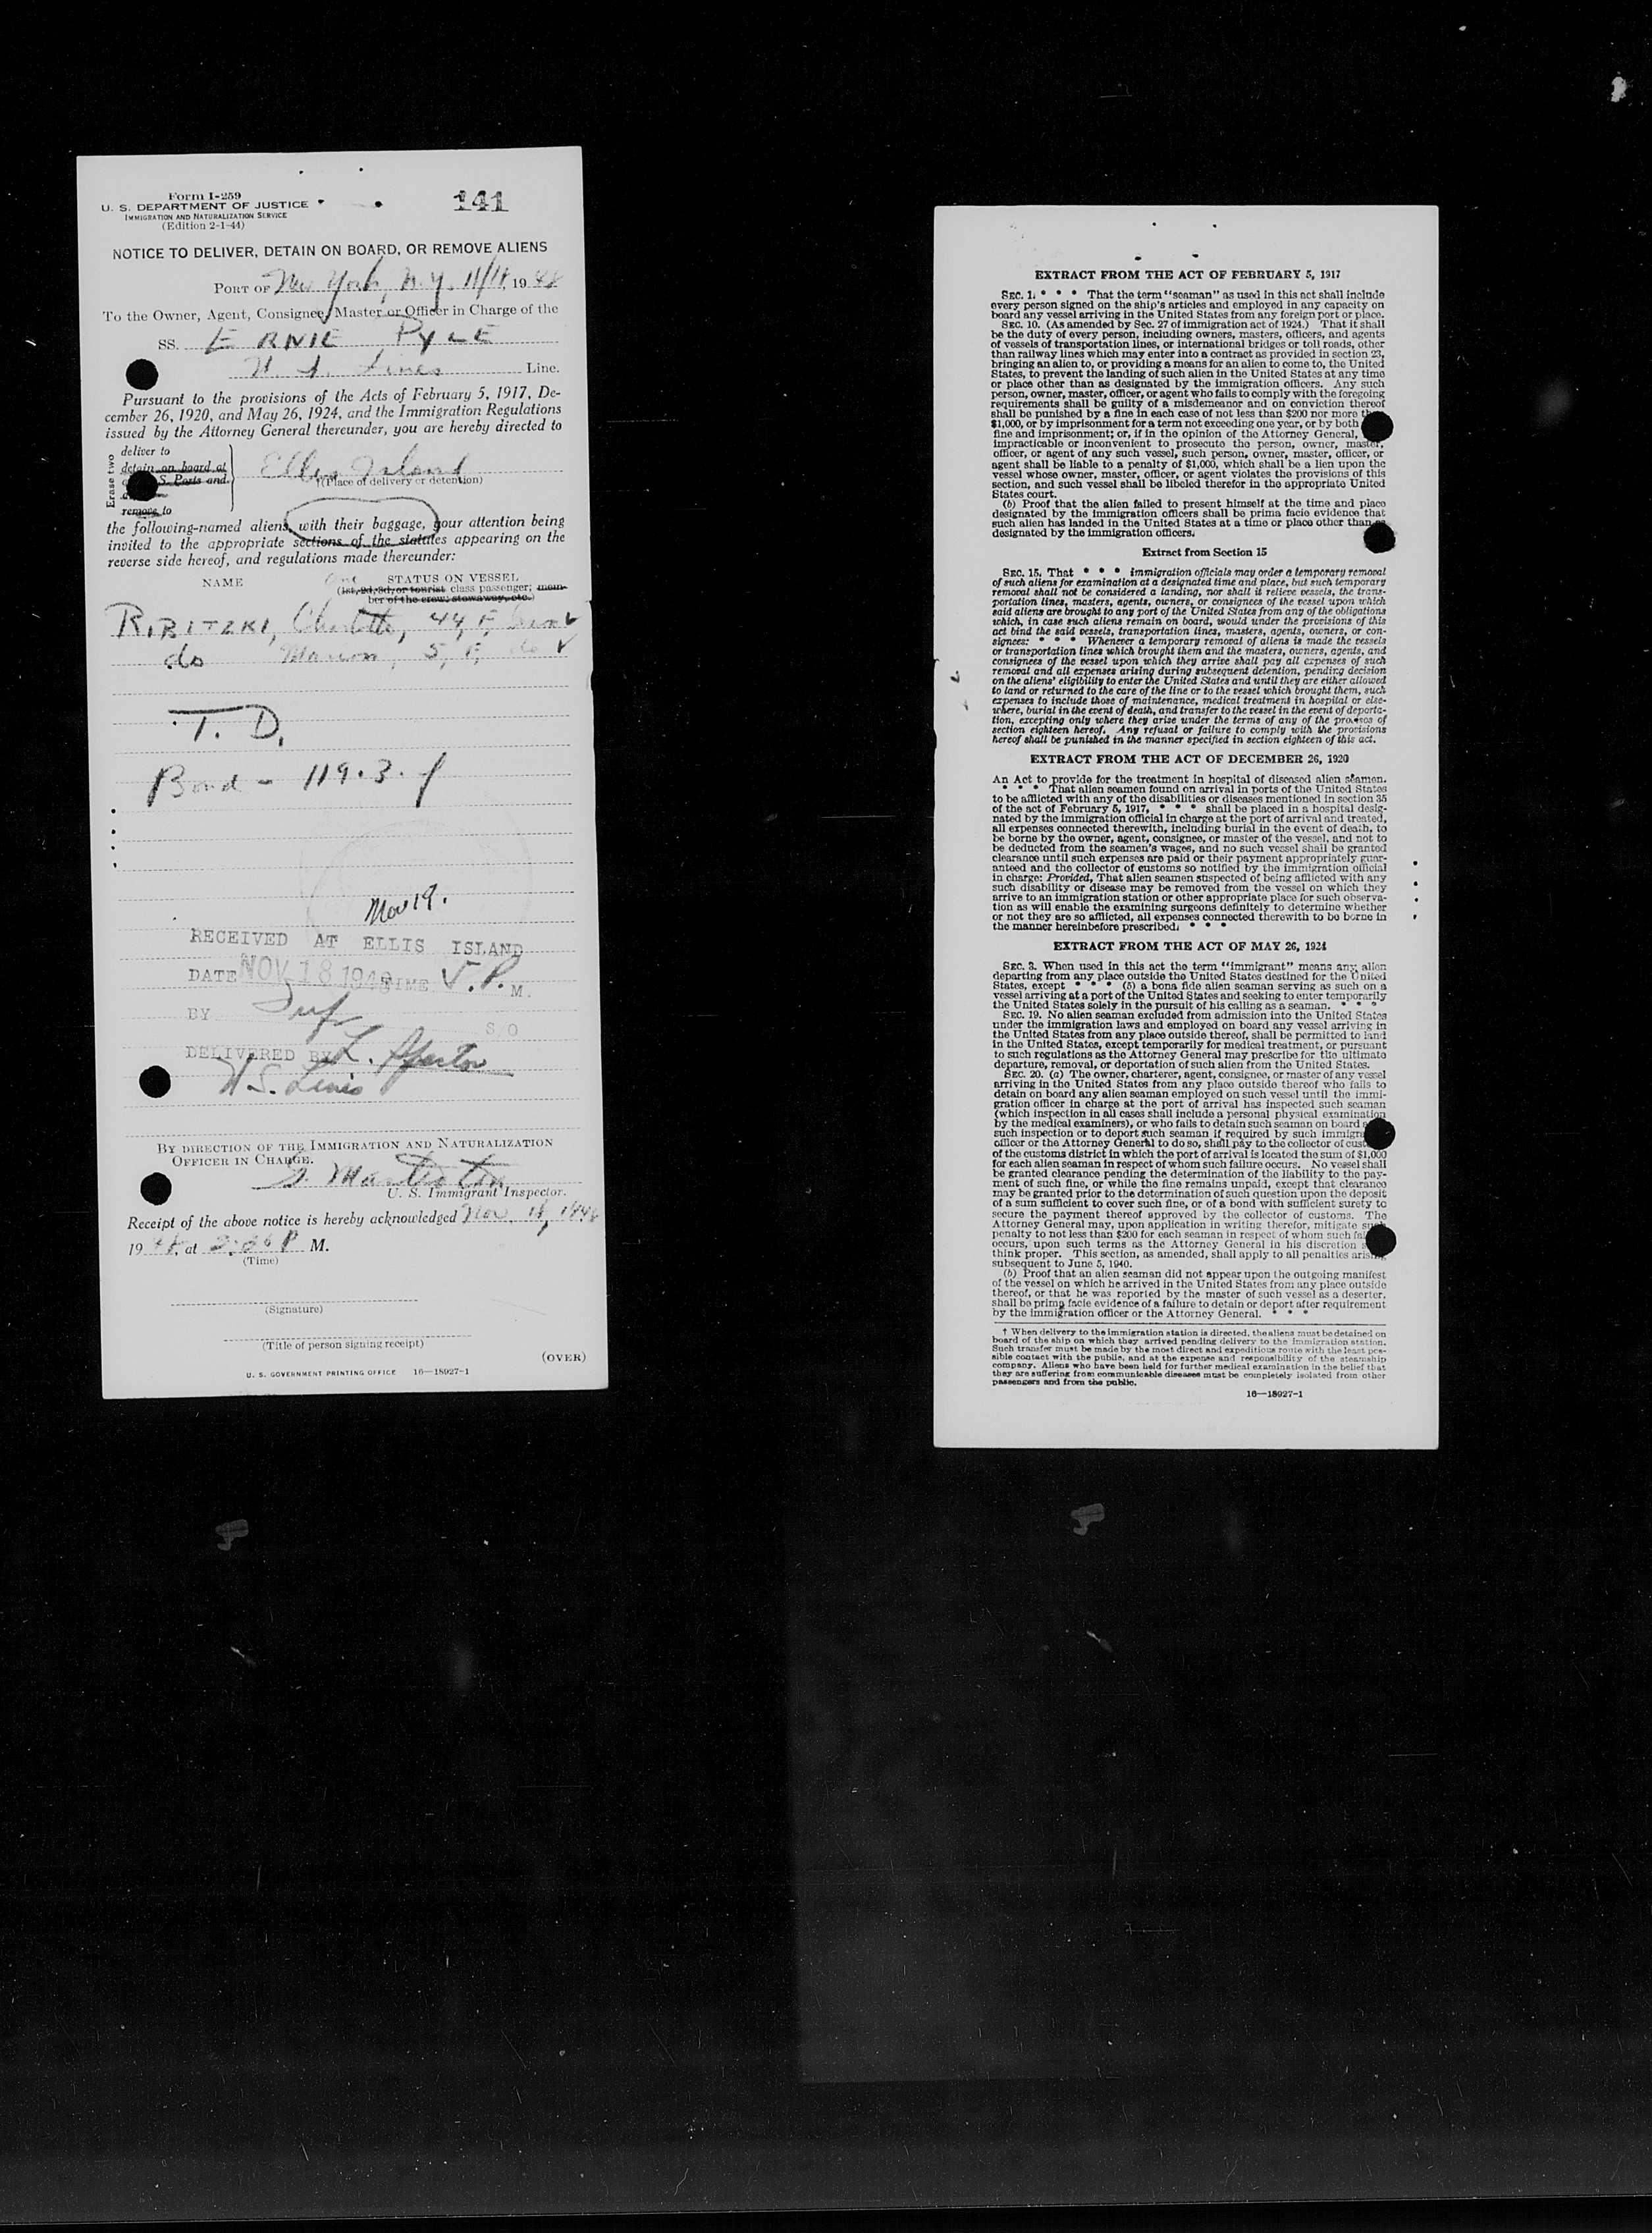 Form I-259
U. S. DEPARTMENT OF JUSTICE
IMMIGRATION AND NATURALIZATION SERVICE
(Edition 2-1-44)
141
NOTICE TO DELIVER, DETAIN ON BOARD, OR REMOVE ALIENS
PORT OF New York, N.Y. 11/18, 19 48
To the Owner, Agent, Consignee, Master or Officer in Charge of the
SS. ERNIE PYLE
U. S. Lines Line.
Pursuant to the provisions of the Acts of February 5, 1917, De-
cember 26, 1920, and May 26, 1924, and the Immigration Regulations
issued by the Attorney General thereunder, you are hereby directed to
Erase two
deliver to
detain on board at
S. Ports and
remove to
Ellis Island
†(Place of delivery or detention)
the following-named aliens, with their baggage, your attention being
invited to the appropriate sections of the statutes appearing on the
reverse side hereof, and regulations made thereunder:
NAME One STATUS ON VESSEL
(1st, 2d, 3d, or tourist class passenger; mem-
ber of the crew; stowaway, etc.)
RIBITZKI, Charlotte, 44, F,
do Marion, 5, F, do
T. D.
Bond - 119.3. f
Nov 19.
RECEIVED AT ELLIS ISLAND
DATE NOV 18 1948 TIME 5. P. M.
BY S O
DELIVERED BY L.
U.S. Lines
BY DIRECTION OF THE IMMIGRATION AND NATURALIZATION
OFFICER IN CHARGE.
U. S. Immigrant Inspector.
Receipt of the above notice is hereby acknowledged Nov. 18, 1948
19 48, at P M.
(Time)
(Signature)
(Title of person signing receipt)
(OVER)
U. S. GOVERNMENT PRINTING OFFICE 16—18927-1
EXTRACT FROM THE ACT OF FEBRUARY 5, 1917
SEC. 1. * * * That the term "seaman" as used in this act shall include
every person signed on the ship's articles and employed in any capacity on
board any vessel arriving in the United States from any foreign port or place.
SEC. 10. (As amended by Sec. 27 of immigration act of 1924.) That it shall
be the duty of every person, including owners, masters, officers, and agents
of vessels of transportation lines, or international bridges or toll roads, other
than railway lines which may enter into a contract as provided in section 23,
bringing an alien to, or providing a means for an alien to come to, the United
States, to prevent the landing of such alien in the United States at any time
or place other than as designated by the immigration officers. Any such
person, owner, master, officer, or agent who fails to comply with the foregoing
requirements shall be guilty of a misdemeanor and on conviction thereof
shall be punished by a fine in each case of not less than $200 nor more than
$1,000, or by imprisonment for a term not exceeding one year, or by both
fine and imprisonment; or, if in the opinion of the Attorney General,
impracticable or inconvenient to prosecute the person, owner, master,
officer, or agent of any such vessel, such person, owner, master, officer, or
agent shall be liable to a penalty of $1,000, which shall be a lien upon the
vessel whose owner, master, officer, or agent violates the provisions of this
section, and such vessel shall be libeled therefor in the appropriate United
States court.
(b) Proof that the alien failed to present himself at the time and place
designated by the immigration officers shall be prima facie evidence that
such alien has landed in the United States at a time or place other than as
designated by the immigration officers.
Extract from Section 15
SEC. 15. That * * * immigration officials may order a temporary removal
of such aliens for examination at a designated time and place, but such temporary
removal shall not be considered a landing, nor shall it relieve vessels, the trans-
portation lines, masters, agents, owners, or consignees of the vessel upon which
said aliens are brought to any port of the United States from any of the obligations
which, in case such aliens remain on board, would under the provisions of this
act bind the said vessels, transportation lines, masters, agents, owners, or con-
signees: * * * Whenever a temporary removal of aliens is made the vessels
or transportation lines which brought them and the masters, owners, agents, and
consignees of the vessel upon which they arrive shall pay all expenses of such
removal and all expenses arising during subsequent detention, pending decision
on the aliens' eligibility to enter the United States and until they are either allowed
to land or returned to the care of the line or to the vessel which brought them, such
expenses to include those of maintenance, medical treatment in hospital or else-
where, burial in the event of death, and transfer to the vessel in the event of deporta-
tion, excepting only where they arise under the terms of any of the provisos of
section eighteen hereof. Any refusal or failure to comply with the provisions
hereof shall be punished in the manner specified in section eighteen of this act.
EXTRACT FROM THE ACT OF DECEMBER 26, 1920
An Act to provide for the treatment in hospital of diseased alien seamen.
* * * That alien seamen found on arrival in ports of the United States
to be afflicted with any of the disabilities or diseases mentioned in section 35
of the act of February 5, 1917, * * * shall be placed in a hospital desig-
nated by the immigration official in charge at the port of arrival and treated,
all expenses connected therewith, including burial in the event of death, to
be borne by the owner, agent, consignee, or master of the vessel, and not to
be deducted from the seamen's wages, and no such vessel shall be granted
clearance until such expenses are paid or their payment appropriately guar-
anteed and the collector of customs so notified by the immigration official
in charge: Provided, That alien seamen suspected of being afflicted with any
such disability or disease may be removed from the vessel on which they
arrive to an immigration station or other appropriate place for such observa-
tion as will enable the examining surgeons definitely to determine whether
or not they are so afflicted, all expenses connected therewith to be borne in
the manner hereinbefore prescribed. * * *
EXTRACT FROM THE ACT OF MAY 26, 1924
SEC. 3. When used in this act the term "immigrant" means any alien
departing from any place outside the United States destined for the United
States, except * * * (5) a bona fide alien seaman serving as such on a
vessel arriving at a port of the United States and seeking to enter temporarily
the United States solely in the pursuit of his calling as a seaman. * * *
SEC. 19. No alien seaman excluded from admission into the United States
under the immigration laws and employed on board any vessel arriving in
the United States from any place outside thereof, shall be permitted to land
in the United States, except temporarily for medical treatment, or pursuant
to such regulations as the Attorney General may prescribe for the ultimate
departure, removal, or deportation of such alien from the United States.
SEC. 20. (a) The owner, charterer, agent, consignee, or master of any vessel
arriving in the United States from any place outside thereof who fails to
detain on board any alien seaman employed on such vessel until the immi-
gration officer in charge at the port of arrival has inspected such seaman
(which inspection in all cases shall include a personal physical examination
by the medical examiners), or who fails to detain such seaman on board
such inspection or to deport such seaman if required by such immigration
officer or the Attorney General to do so, shall pay to the collector of customs
of the customs district in which the port of arrival is located the sum of $1,000
for each alien seaman in respect of whom such failure occurs. No vessel shall
be granted clearance pending the determination of the liability to the pay-
ment of such fine, or while the fine remains unpaid, except that clearance
may be granted prior to the determination of such question upon the deposit
of a sum sufficient to cover such fine, or of a bond with sufficient surety to
secure the payment thereof approved by the collector of customs. The
Attorney General may, upon application in writing therefor, mitigate such
penalty to not less than $200 for each seaman in respect of whom such failure
occurs, upon such terms as the Attorney General in his discretion
think proper. This section, as amended, shall apply to all penalties arising
subsequent to June 5, 1940.
(b) Proof that an alien seaman did not appear upon the outgoing manifest
of the vessel on which he arrived in the United States from any place outside
thereof, or that he was reported by the master of such vessel as a deserter,
shall be prima facie evidence of a failure to detain or deport after requirement
by the immigration officer or the Attorney General. * * *
† When delivery to the immigration station is directed, the aliens must be detained on
board of the ship on which they arrived pending delivery to the immigration station.
Such transfer must be made by the most direct and expeditious route with the least pos-
sible contact with the public, and at the expense and responsibility of the steamship
company. Aliens who have been held for further medical examination in the belief that
they are suffering from communicable diseases must be completely isolated from other
passengers and from the public.
16—18927-1